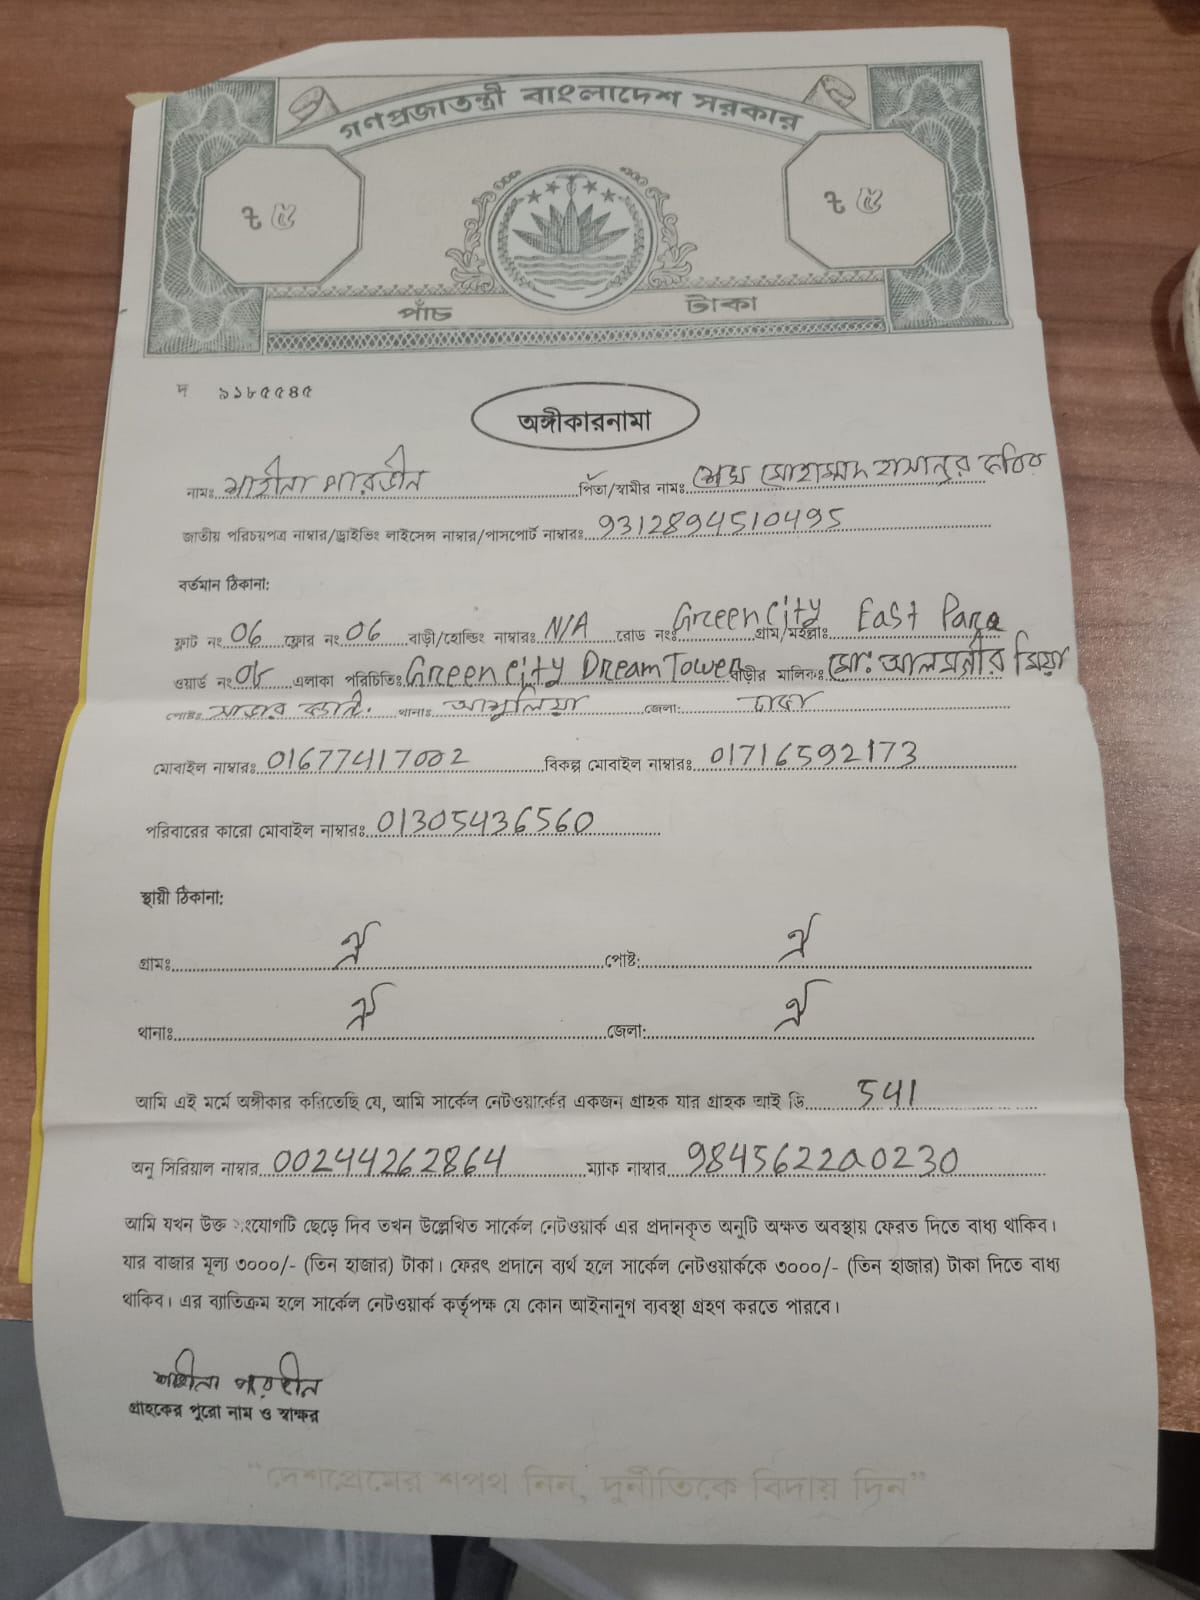 গণপ্রজাতন্ত্রী বাংলাদেশ সরকার
৳ ৫ ৳ ৫
পাঁচ টাকা
দ ৯১৮৫৫৪৫
অঙ্গীকারনামা
নামঃ শাহীনা পারভীন পিতা/স্বামীর নামঃ শেখ মোহাম্মদ হাসানুর কবির
জাতীয় পরিচয়পত্র নাম্বার/ড্রাইভিং লাইসেন্স নাম্বার/পাসপোর্ট নাম্বারঃ 9312894510495
বর্তমান ঠিকানা:
ফ্লাট নং 06 ফ্লোর নং 06 বাড়ী/হোল্ডিং নাম্বারঃ N/A রোড নংঃ Green City গ্রাম/মহল্লাঃ East Para
ওয়ার্ড নং 08 এলাকা পরিচিতিঃ Green City Dream Tower বাড়ীর মালিকঃ মো: আলমগীর মিয়া
পোষ্টঃ সাভার ক্যান্ট. থানাঃ আশুলিয়া জেলা: ঢাকা
মোবাইল নাম্বারঃ 01677417002 বিকল্প মোবাইল নাম্বারঃ 01716592173
পরিবারের কারো মোবাইল নাম্বারঃ 01305436560
স্থায়ী ঠিকানা:
গ্রামঃ ঐ পোষ্ট: ঐ
থানাঃ ঐ জেলা: ঐ
আমি এই মর্মে অঙ্গীকার করিতেছি যে, আমি সার্কেল নেটওয়ার্কের একজন গ্রাহক যার গ্রাহক আই ডি 541
অনু সিরিয়াল নাম্বার 00244262864 ম্যাক নাম্বার 9845622a0230
আমি যখন উক্ত সংযোগটি ছেড়ে দিব তখন উল্লেখিত সার্কেল নেটওয়ার্ক এর প্রদানকৃত অনুটি অক্ষত অবস্থায় ফেরত দিতে বাধ্য থাকিব।
যার বাজার মূল্য ৩০০০/- (তিন হাজার) টাকা। ফেরৎ প্রদানে ব্যর্থ হলে সার্কেল নেটওয়ার্ককে ৩০০০/- (তিন হাজার) টাকা দিতে বাধ্য
থাকিব। এর ব্যাতিক্রম হলে সার্কেল নেটওয়ার্ক কর্তৃপক্ষ যে কোন আইনানুগ ব্যবস্থা গ্রহণ করতে পারবে।
শাহীনা পারভীন
গ্রাহকের পুরো নাম ও স্বাক্ষর
"দেশপ্রেমের শপথ নিন, দুর্নীতিকে বিদায় দিন"